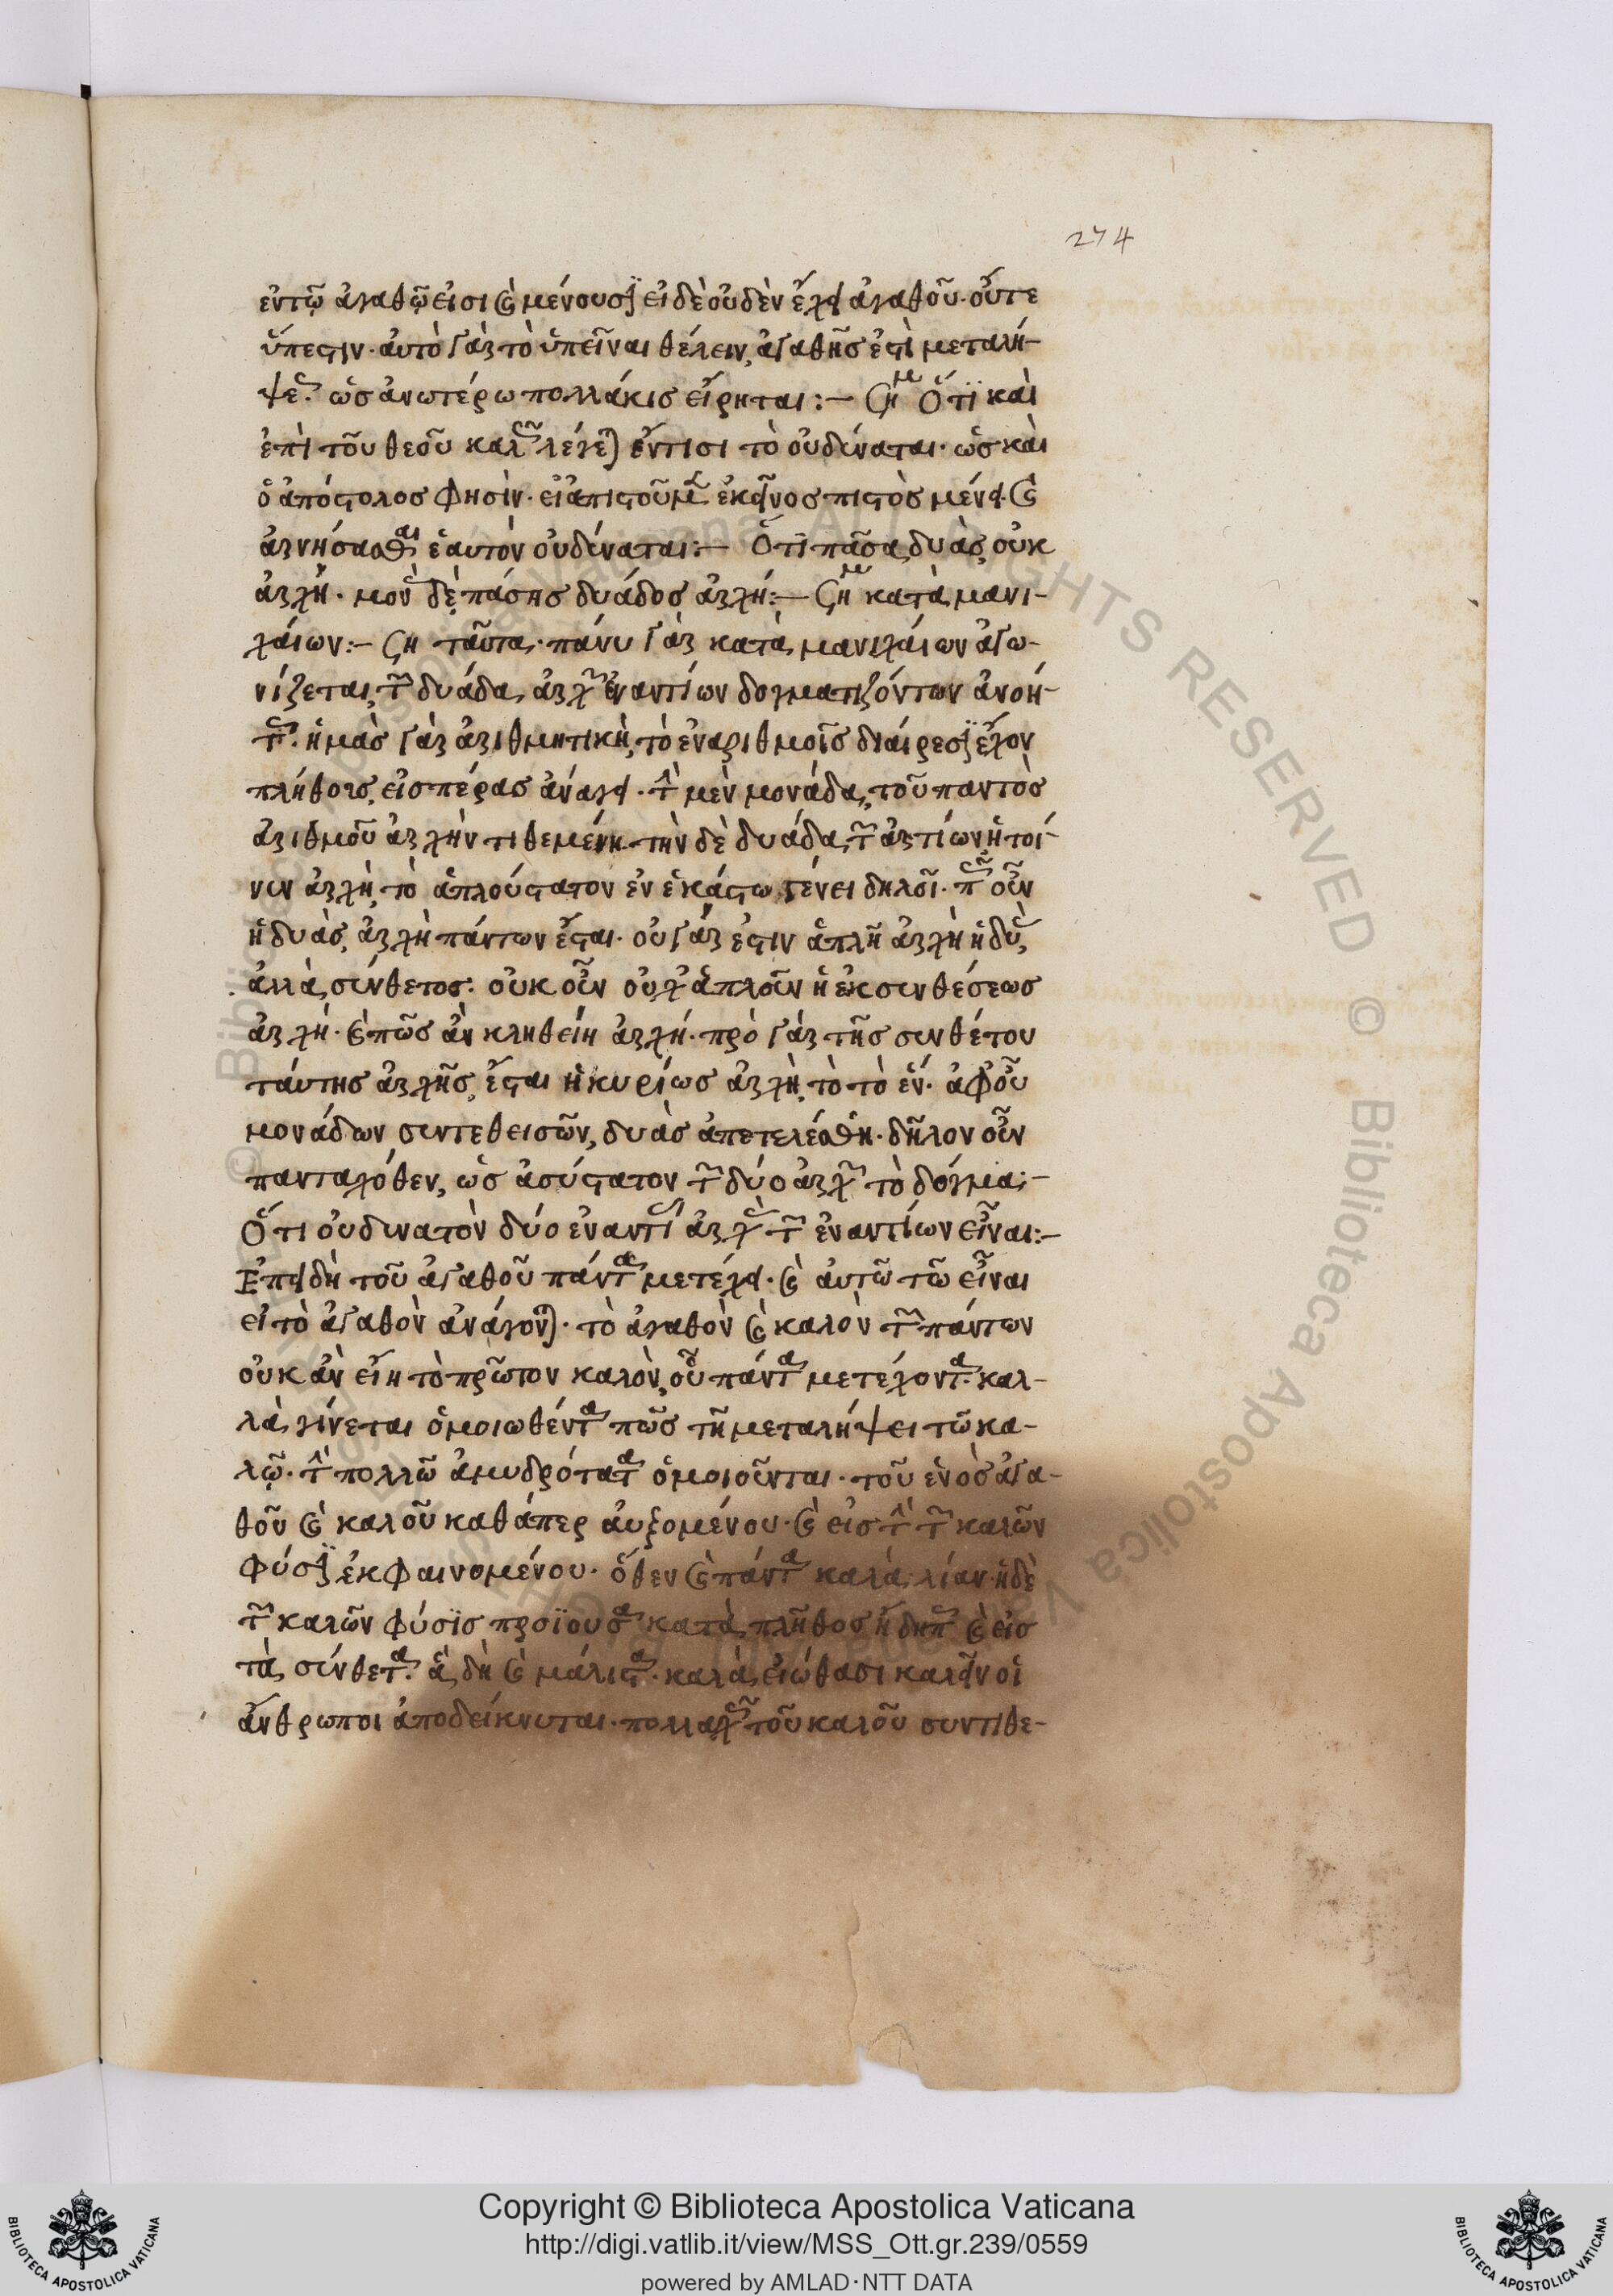 274
ἐν τῷ ἀγαθῷ εἰσι καὶ μένουσιν εἰ δὲ οὐδὲν ἔχει ἀγαθοῦ· οὔτε
ὕπεστιν· αὐτὸ γὰρ τὸ ὑπεῖναι θέλειν, ἀγαθῆς ἐστὶ μεταλή-
ψεως· ὡς ἀνωτέρω πολλάκις εἴρηται:— Ση Ὅτι καὶ
ἐπὶ τοῦ θεοῦ καλῶς λέγεται ἔν τισι τὸ οὐ δύναται· ὡς καὶ
ὁ ἀπόστολος φησὶν· εἰ ἀπιστοῦμεν ἐκεῖνος πιστὸς μένει· καὶ
ἀρνήσασθαι ἑαυτὸν οὐ δύναται:— Ὅτι πᾶσα δυὰς, οὐκ
ἀρχή· μονὰς δὲ πάσης δυάδος ἀρχή:— Ση κατὰ μανι-
χαίων:— Ση ταῦτα· πάνυ γὰρ κατὰ μανιχαίων ἀγω-
νίζεται, τῶν δυάδα ἀρχῶν ἐναντίων δογματιζόντων ἀνοή-
τως· ἡμᾶς γὰρ ἀριθμητικὴ, τὸ ἐν ἀριθμοῖς διαίρεσιν ἔχον
πλῆθος, εἰς πέρας ἀνάγει· τὴν μὲν μονάδα, τοῦ παντὸς
ἀριθμοῦ ἀρχὴν τιθεμένη· τὴν δὲ δυάδα, τῶν ἀρτίων ἡ τοί-
νυν ἀρχὴ, τὸ ἁπλούστατον ἐν ἑκάστω γένει δηλοῖ· πῶς οὖν
ἡ δυὰς, ἀρχὴ πάντων ἔσται· οὐ γάρ ἐστιν ἁπλῆ ἀρχὴ ἡ δυὰς,
ἀλλὰ σύνθετος· οὐκοῦν οὐχ ἁπλοῦν ἡ ἐκ συνθέσεως
ἀρχή· καὶ πῶς ἂν κληθείη ἀρχή· πρὸ γὰρ τῆς συνθέτου
ταύτης ἀρχῆς, ἔσται ἡ κυρίως ἀρχὴ, τὸ τὸ ἕν· ἀφ οὗ
μονάδων συντεθεισῶν, δυὰς ἀπετελέσθη· δῆλον οὖν
πανταχόθεν, ὡς ἀσύστατον τῶν δύο ἀρχῶν τὸ δόγμα:—
Ὅτι οὐ δυνατὸν δύο ἐναντίας ἀρχὰς τῶν ἐναντίων εἶναι:—
Ἐπειδὴ τοῦ ἀγαθοῦ πάντα μετέχει· καὶ αὐτῶ τῶ εἶναι
εἰ τὸ ἀγαθὸν ἀνάγονται· τὸ ἀγαθὸν καὶ καλὸν τῶν πάντων
οὐκ ἂν εἴη τὸ πρῶτον καλὸν, οὗ πάντα μετέχοντα· καλ-
λὰ γίνεται ὁμοιωθέντα πῶς τῆ μεταλήψει τῶ κα-
λῷ· τὴν πολλῶ ἀμυδρότατα ὁμοιοῦνται· τοῦ ἑνὸς ἀγα-
θοῦ καὶ καλοῦ καθάπερ αὐξομένου· καὶ εἰς τὴν τῶν καλῶν
φύσιν ἐκφαινομένου· ὅθεν καὶ πάντα καλὰ λίαν· ἡ δὲ
τῶν καλῶν φύσϊς προϊοῦσα κατὰ πλῆθος ἤδη καὶ εἰς
τὰ σύνθετα· ἃ δὴ καὶ μάλιστα· καλὰ εἰώθασι καλεῖν οἱ
ἄνθρωποι ἀποδείκνυται· πολλαχῶς τοῦ καλοῦ συντιθε-
Copyright © Biblioteca Apostolica Vaticana
http://digi.vatlib.it/view/MSS_Ott.gr.239/0559
powered by AMLAD·NTT DATA